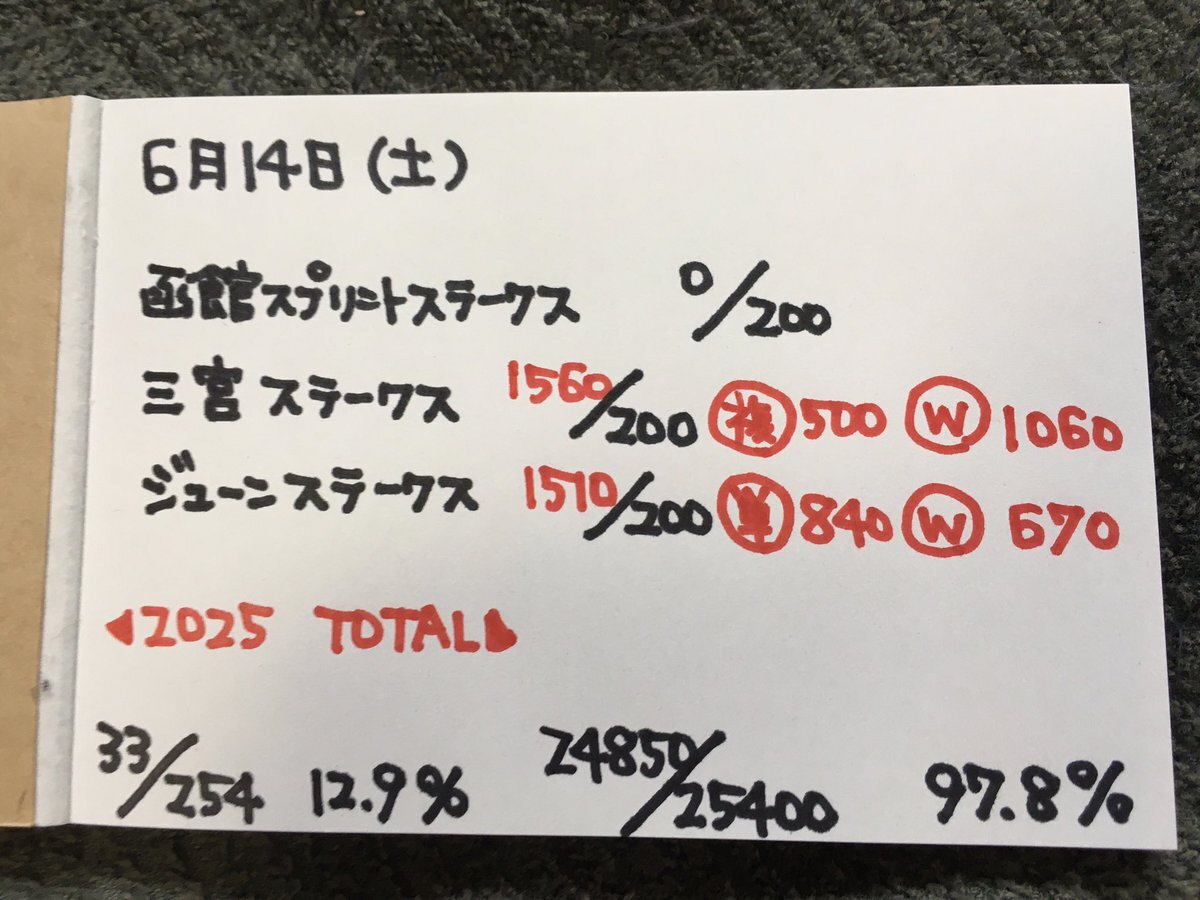 6月14日(土)
函館スプリントステークス 0/200
三宮ステークス 1560/200 複 500 Ⓦ 1060
ジューンステークス 1510/200 単 840 Ⓦ 670
◀2025 TOTAL▶
33/254 12.9% 24850/25400 97.8%